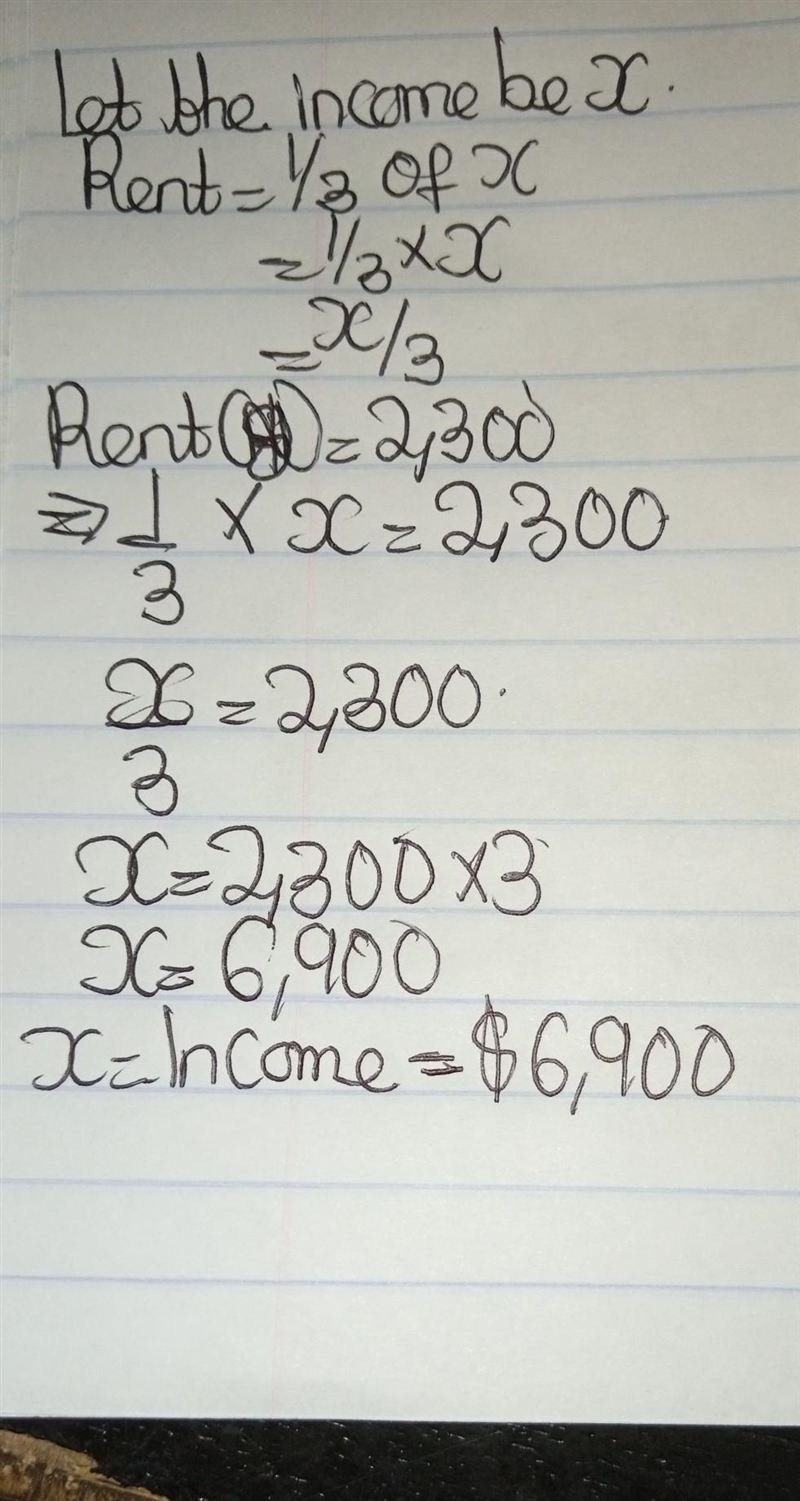 Let the income be x.
Rent = 1/3 of x
= 1/3 × x
= x/3
Rent () = 2,300
⇒ 1/3 × x = 2,300
x/3 = 2,300.
x = 2,300 × 3
x = 6,900
x = Income = $6,900